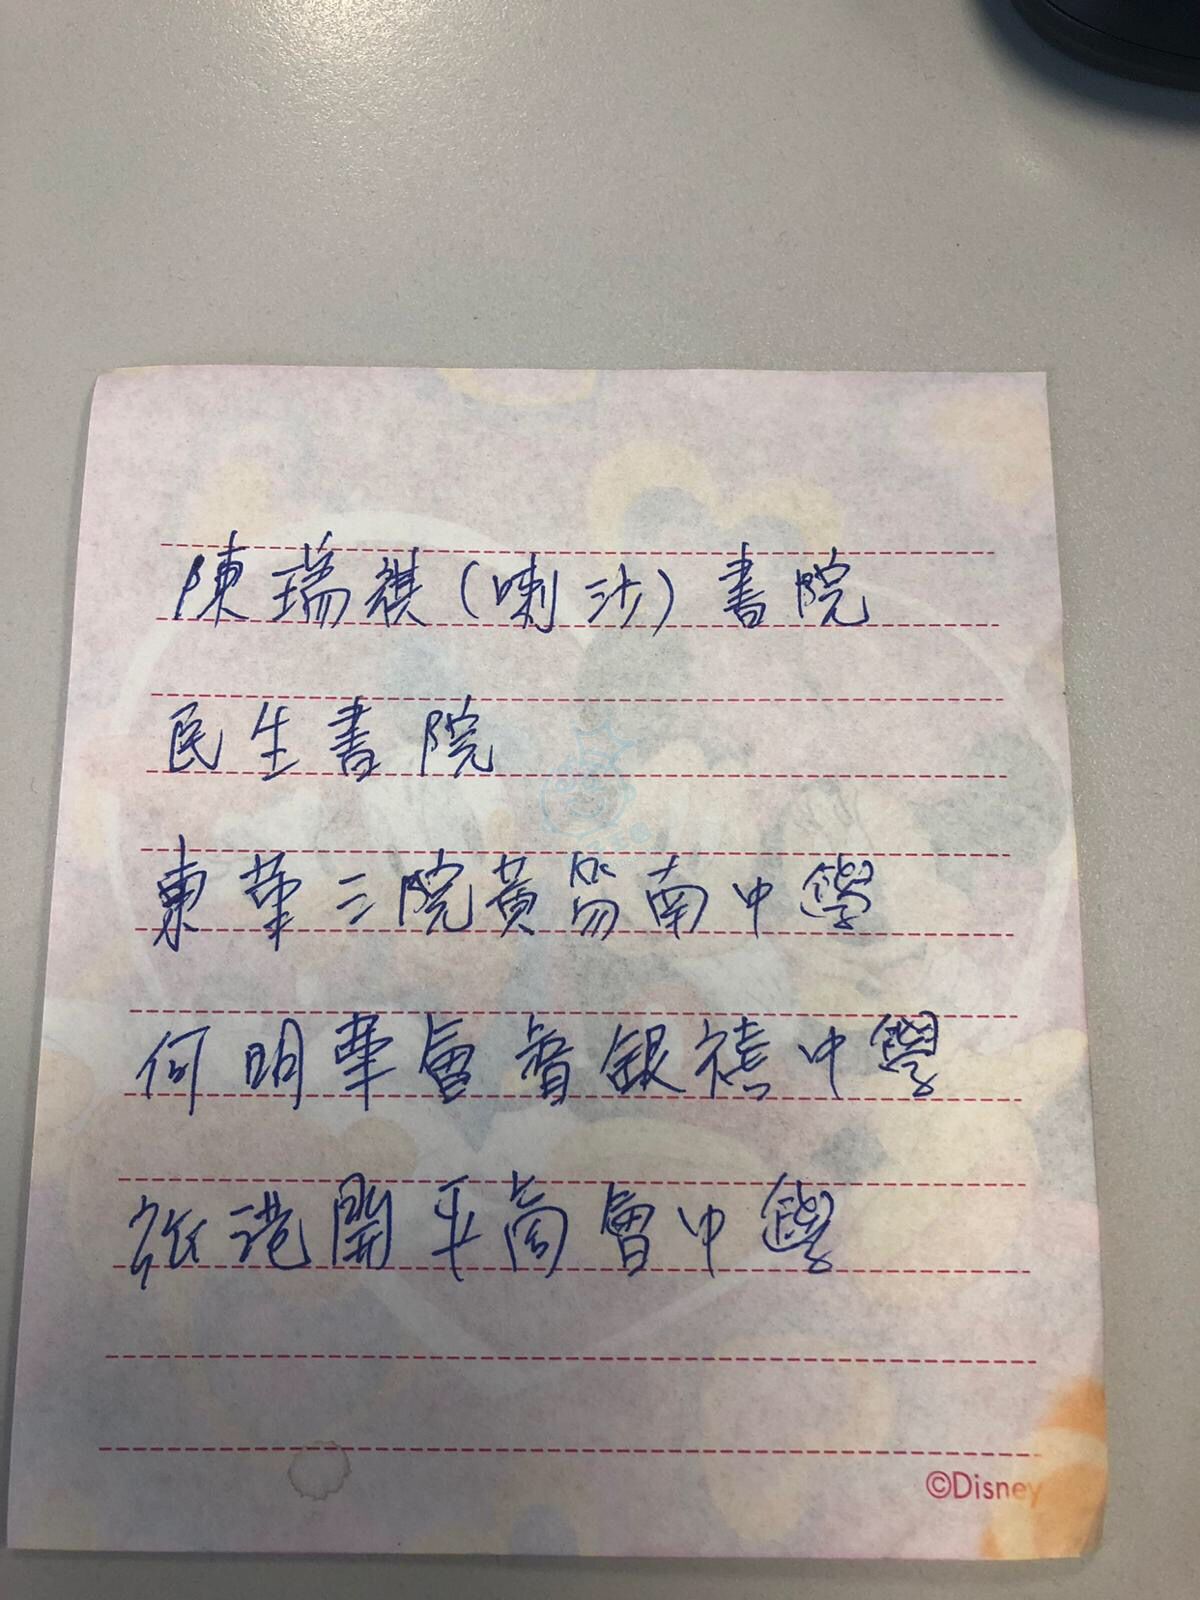 陳瑞祺(喇沙)書院
民生書院
東華三院黃笏南中學
何明華會督銀禧中學
旅港開平商會中學
©Disney